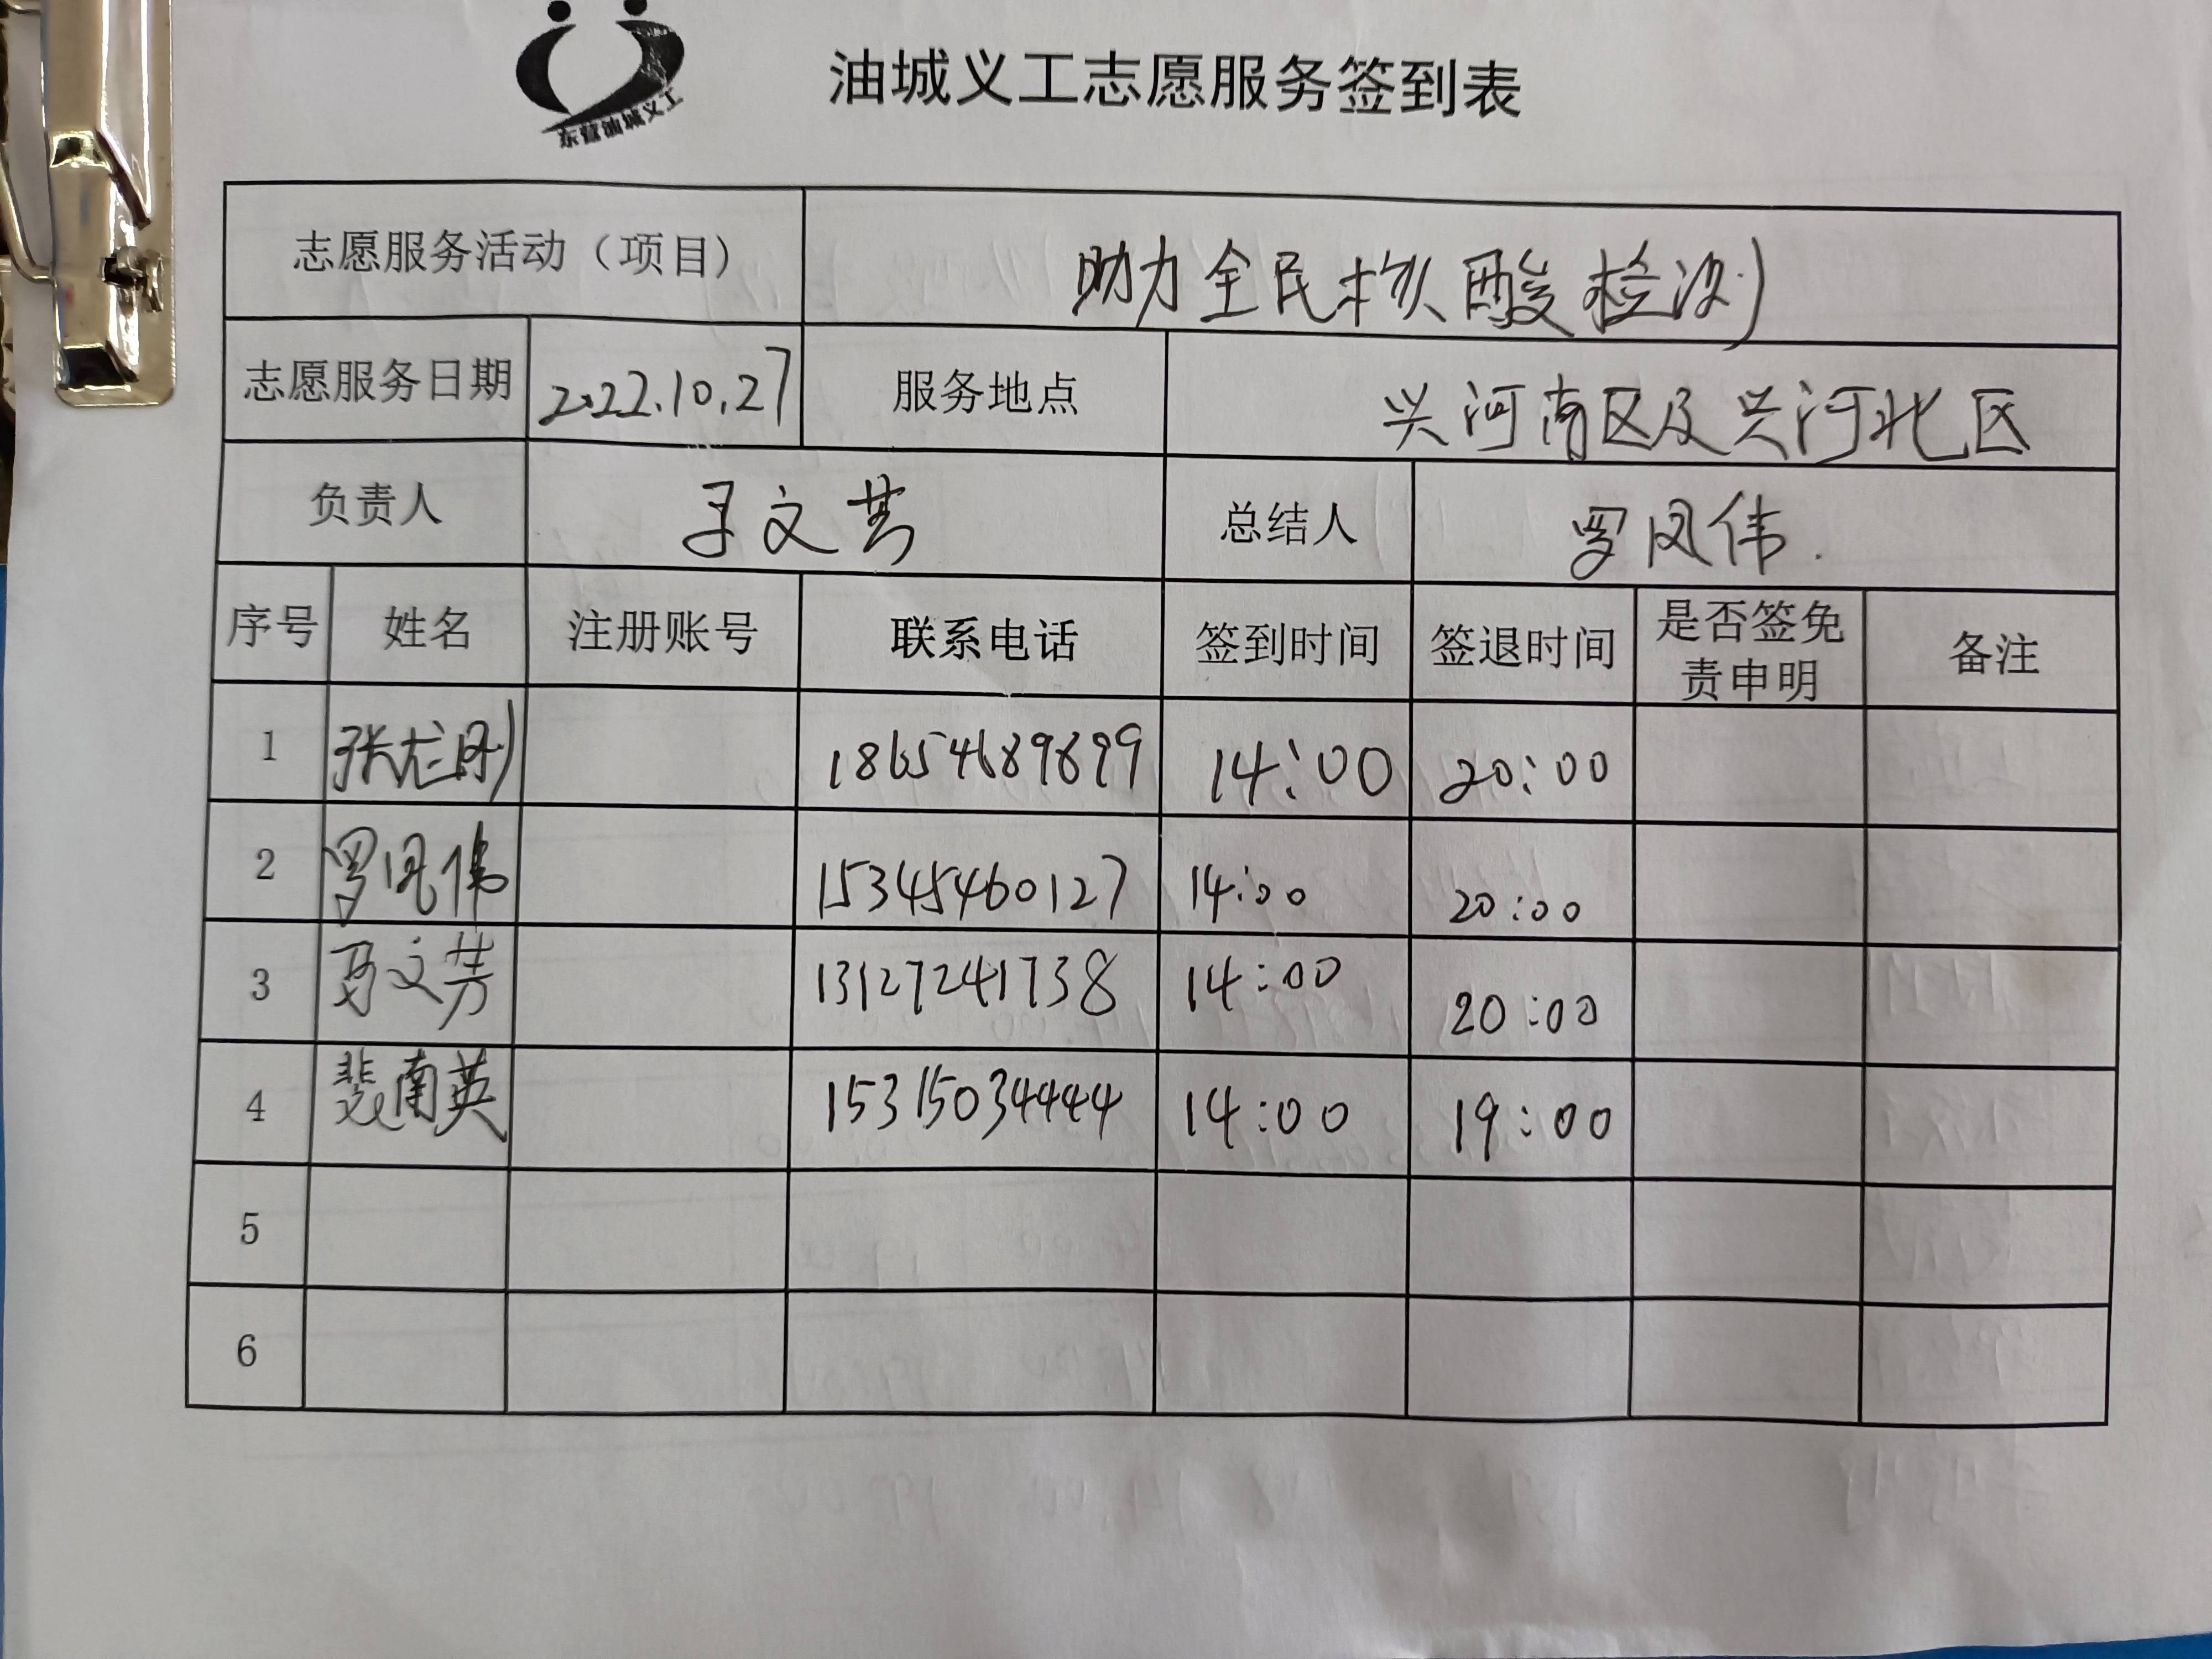 东营油城义工
油城义工志愿服务签到表
志愿服务活动（项目） 助力全民核酸检测
志愿服务日期 2022.10.27 服务地点 兴河南区及兴河北区
负责人 文芳 总结人 罗凤伟.
序号 姓名 注册账号 联系电话 签到时间 签退时间 是否签免责申明 备注
1 张龙刚 18654689899 14:00 20:00
2 罗凤伟 15345460127 14:00 20:00
3 文芳 13127241738 14:00 20:00
4 裴南英 15315034444 14:00 19:00
5
6